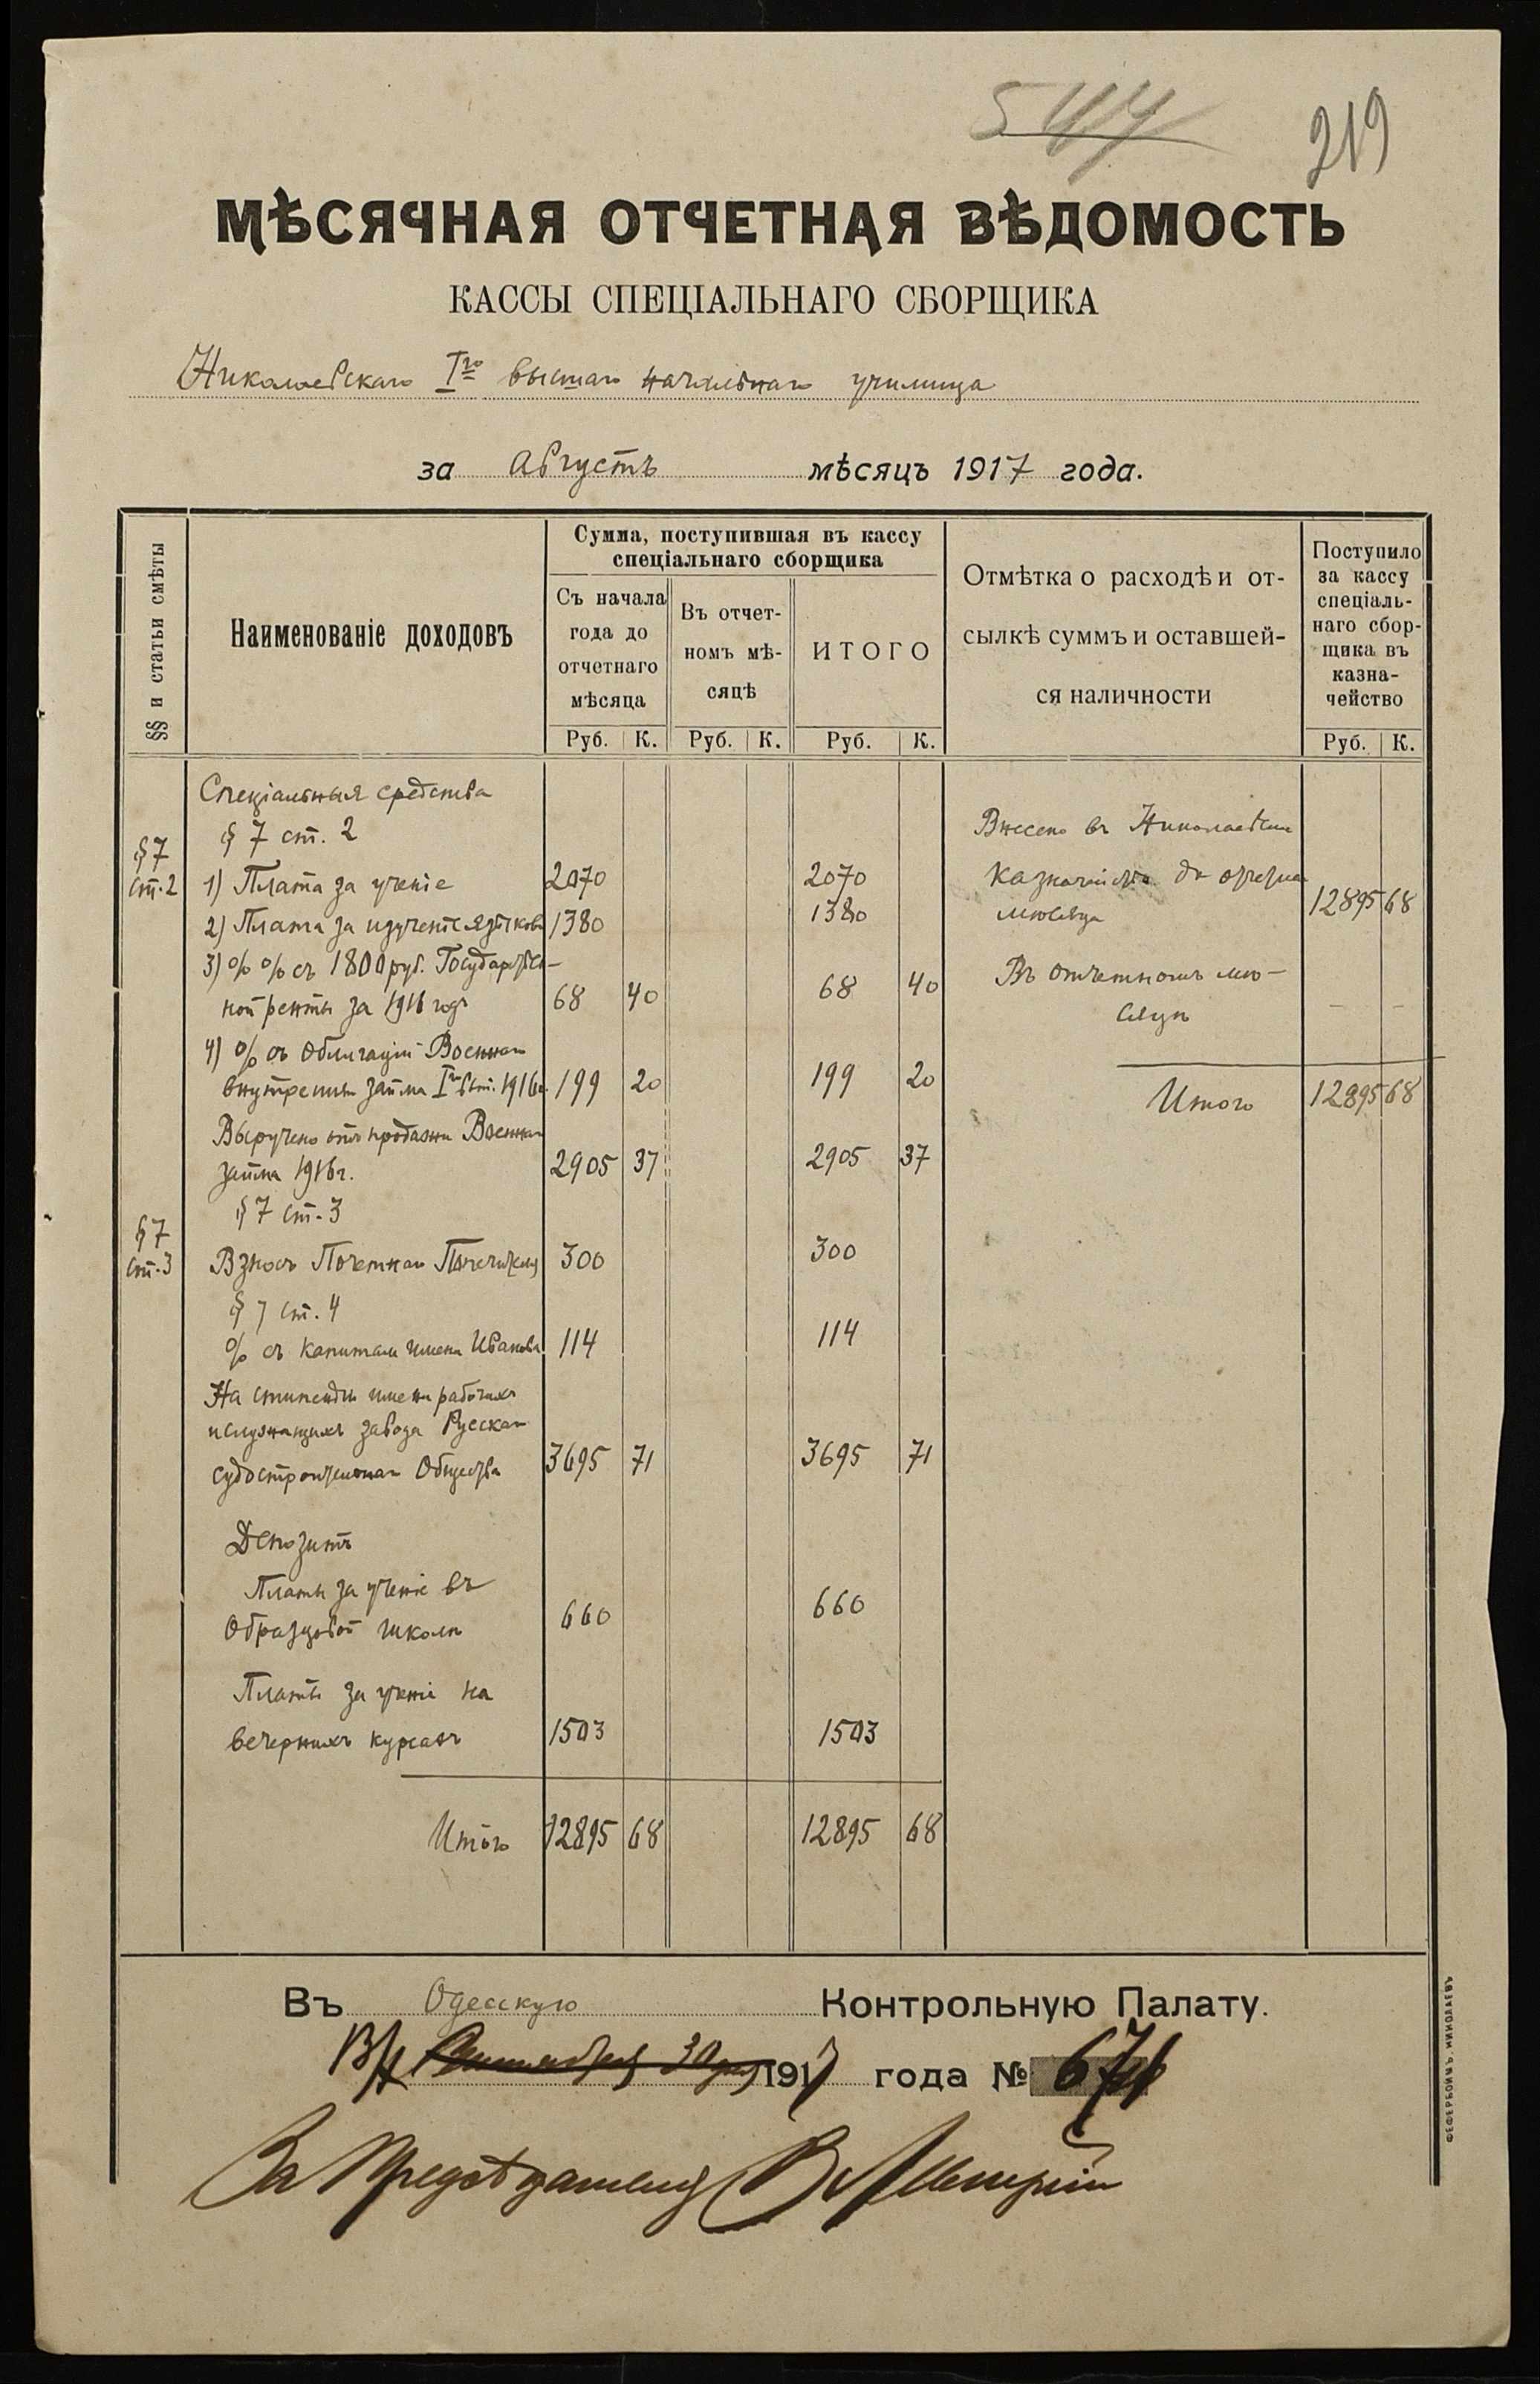 544
219
МѢСЯЧНАЯ ОТЧЕТНАЯ ВѢДОМОСТЬ
КАССЫ СПЕЦІАЛЬНАГО СБОРЩИКА
Николаевскаго Iго высшаго начальнаго училища
за Августъ мѣсяцъ 1917 года.
§§ и статьи смѣты
Наименованіе доходовъ
Сумма, поступившая въ кассу
спеціальнаго сборщика
Съ начала
года до
отчетнаго
мѣсяца
Въ отчет-
номъ мѣ-
сяцѣ
ИТОГО
Отмѣтка о расходѣ и от-
сылкѣ суммъ и оставшей-
ся наличности
Поступило
за кассу
спеціаль-
наго сбор-
щика въ
казна-
чейство
Руб. К. Руб. К. Руб. К. Руб. К.
Спеціальныя средства
§ 7 ст. 2
§ 7
ст. 2 1) Плата за ученіе 2070 2070
2) Плата за изученіе языковъ 1380 1380
3) % % съ 1800 руб. Государствен-
ной ренты за 1916 годъ 68 40 68 40
4) % съ Облигацій Военнаго
внутренняго займа Iго вып. 1916г 199 20 199 20
Выручено отъ продажи Военнаго
займа 1916 г. 2905 37 2905 37
§ 7 ст. 3
§ 7
ст. 3 Взносъ Почетнаго Попечителя 300 300
§ 7 ст. 4
% съ капитала имени Иванова 114 114
На стипендіи имени рабочихъ
и служащихъ завода Русскаго
судостроительнаго Общества 3695 71 3695 71
Депозитъ
Плата за ученіе въ
Образцовой школѣ 660 660
Плата за ученіе на
вечернихъ курсахъ 1503 1503
Итого 12895 68 12895 68
Внесено въ Николаевское
Казначейство до отчетнаго
мѣсяца 12895 68
Въ отчетномъ мѣ-
сяцѣ — —
Итого 12895 68
Въ Одесскую Контрольную Палату.
1917 года № 671
За Предсѣдателя
ФЕФЕРБОЙМЪ. НИКОЛАЕВЪ